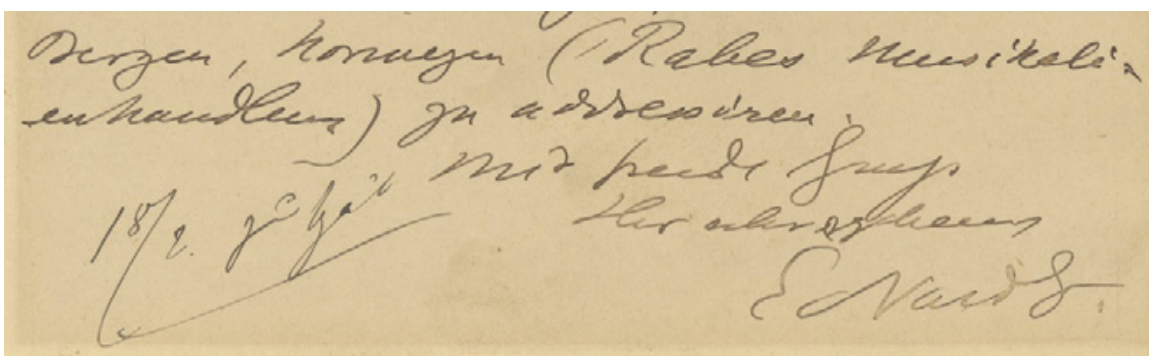 Bergen, Norwegen (Rabes Musikali-
enhandlung) zu addressiren.
Mit freundl Gruss
Ihr
18/2.
Edvard G.